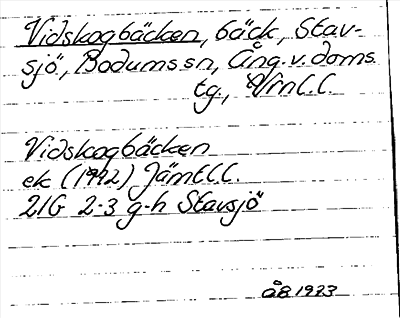 Vidskogbäcken, bäck, Stav-
sjö, Bodums sn, Ång. v. doms.
tg., Vrnl. l.
Vidskogbäcken
ek (1942) Jämtl. l.
21G 2-3 g-h Stavsjö
ÅB 1973